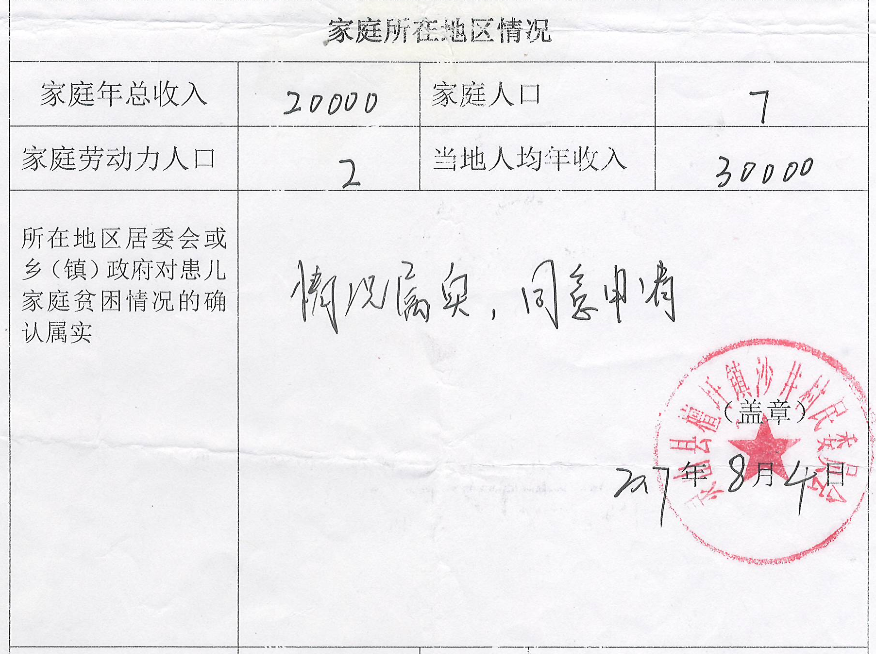 家庭所在地区情况
家庭年总收入 20000 家庭人口 7
家庭劳动力人口 2 当地人均年收入 30000
所在地区居委会或
乡(镇)政府对患儿
家庭贫困情况的确
认属实
情况属实,同意申请
镇沙井村民委员会
(盖章)
2017年8月4日